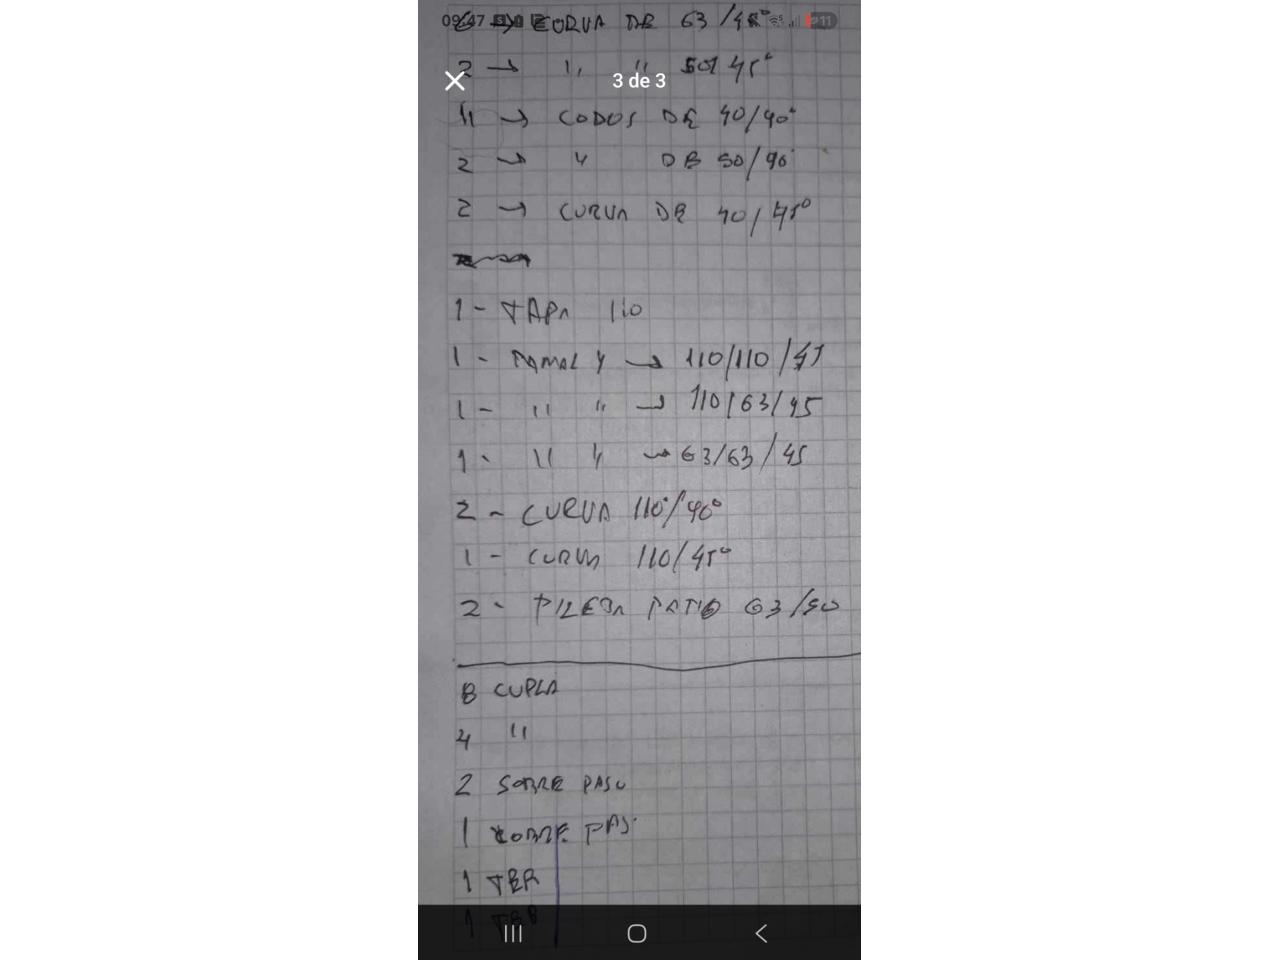 09:47 11
6 → CURVA DE 63/45°
2 → ,, '' 50/45°
3 de 3
4 → CODOS DE 40/90°
2 → " DE 50/90
2 → CURVA DE 40/45°
1 - TAPA 110
1 - RAMAL Y → 110/110/45
1 - '' '' → 110/63/45
1 - '' '' → 63/63/45
2 - CURVA 110/90°
1 - CURVA 110/45°
2 - PILETA PATIO 63/50
8 CUPLA
4 ''
2 SOBRE PASO
1 SOBRE PAS.
1 TEE
1 TEE